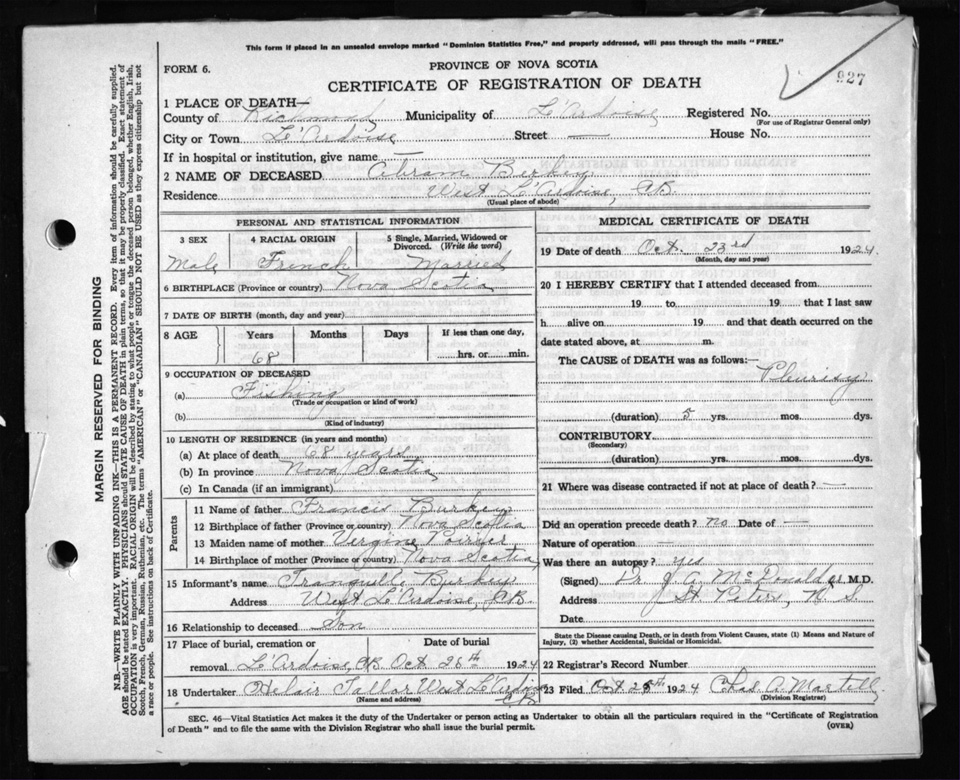 This form if placed in an unsealed envelope marked "Dominion Statistics Free," and properly addressed, will pass through the mails "FREE."
PROVINCE OF NOVA SCOTIA
FORM 6.
927
CERTIFICATE OF REGISTRATION OF DEATH
1 PLACE OF DEATH—
County of Richmond Municipality of L'Ardoise Registered No.
(For use of Registrar General only)
City or Town L'Ardoise Street — House No.
If in hospital or institution, give name —
2 NAME OF DECEASED Abram
Residence West L'Ardoise, CB
(Usual place of abode)
PERSONAL AND STATISTICAL INFORMATION
3 SEX 4 RACIAL ORIGIN 5 Single, Married, Widowed or Divorced. (Write the word)
Male French Married
6 BIRTHPLACE (Province or country) Nova Scotia
7 DATE OF BIRTH (month, day and year)
8 AGE Years Months Days If less than one day,
68 hrs. or min.
9 OCCUPATION OF DECEASED
(a) Fishing
(Trade or occupation or kind of work)
(b)
(Kind of industry)
10 LENGTH OF RESIDENCE (in years and months)
(a) At place of death 68 years
(b) In province Nova Scotia
(c) In Canada (if an immigrant)
Parents
11 Name of father Francis
12 Birthplace of father (Province or country) Nova Scotia
13 Maiden name of mother Vergine Poirier
14 Birthplace of mother (Province or country) Nova Scotia
15 Informant's name Tranquille
Address West L'Ardoise, CB
16 Relationship to deceased Son
17 Place of burial, cremation or removal Date of burial
L'Ardoise, CB Oct 26th 1924
18 Undertaker West L'Ardoise CB
(Name and address)
MEDICAL CERTIFICATE OF DEATH
19 Date of death Oct. 23rd 1924
(Month, day and year)
20 I HEREBY CERTIFY that I attended deceased from
19 to 19 that I last saw
h alive on 19 and that death occurred on the
date stated above, at m.
The CAUSE OF DEATH was as follows:—
Pleurisy
(duration) 5 yrs. mos. dys.
CONTRIBUTORY
(Secondary)
(duration) yrs. mos. dys.
21 Where was disease contracted if not at place of death? —
Did an operation precede death? no Date of —
Nature of operation —
Was there an autopsy? yes
(Signed) Dr. J. A. McDonald M.D.
Address St. Peters, N S.
Date
State the Disease causing Death, or in death from Violent Causes, state (1) Means and Nature of
Injury, (2) whether Accidental, Suicidal or Homicidal.
22 Registrar's Record Number
23 Filed Oct 25th 1924 Chas A. Martell
(Division Registrar)
SEC. 46—Vital Statistics Act makes it the duty of the Undertaker or person acting as Undertaker to obtain all the particulars required in the "Certificate of Registration
of Death" and to file the same with the Division Registrar who shall issue the burial permit.
(OVER)
MARGIN RESERVED FOR BINDING
N.B.—WRITE PLAINLY WITH UNFADING INK—THIS IS A PERMANENT RECORD. Every item of information should be carefully supplied.
AGE should be stated EXACTLY. PHYSICIANS should STATE CAUSE OF DEATH in plain terms, so that it may be properly classified. Exact statement of
OCCUPATION is very important. RACIAL ORIGIN will be described by stating to what people or tongue the deceased person belonged, whether English, Irish,
Scotch, French, German, Russian, Ruthenian, etc. The terms "AMERICAN" or "CANADIAN" SHOULD NOT BE USED as they express citizenship but not
a race or people. See instructions on back of Certificate.